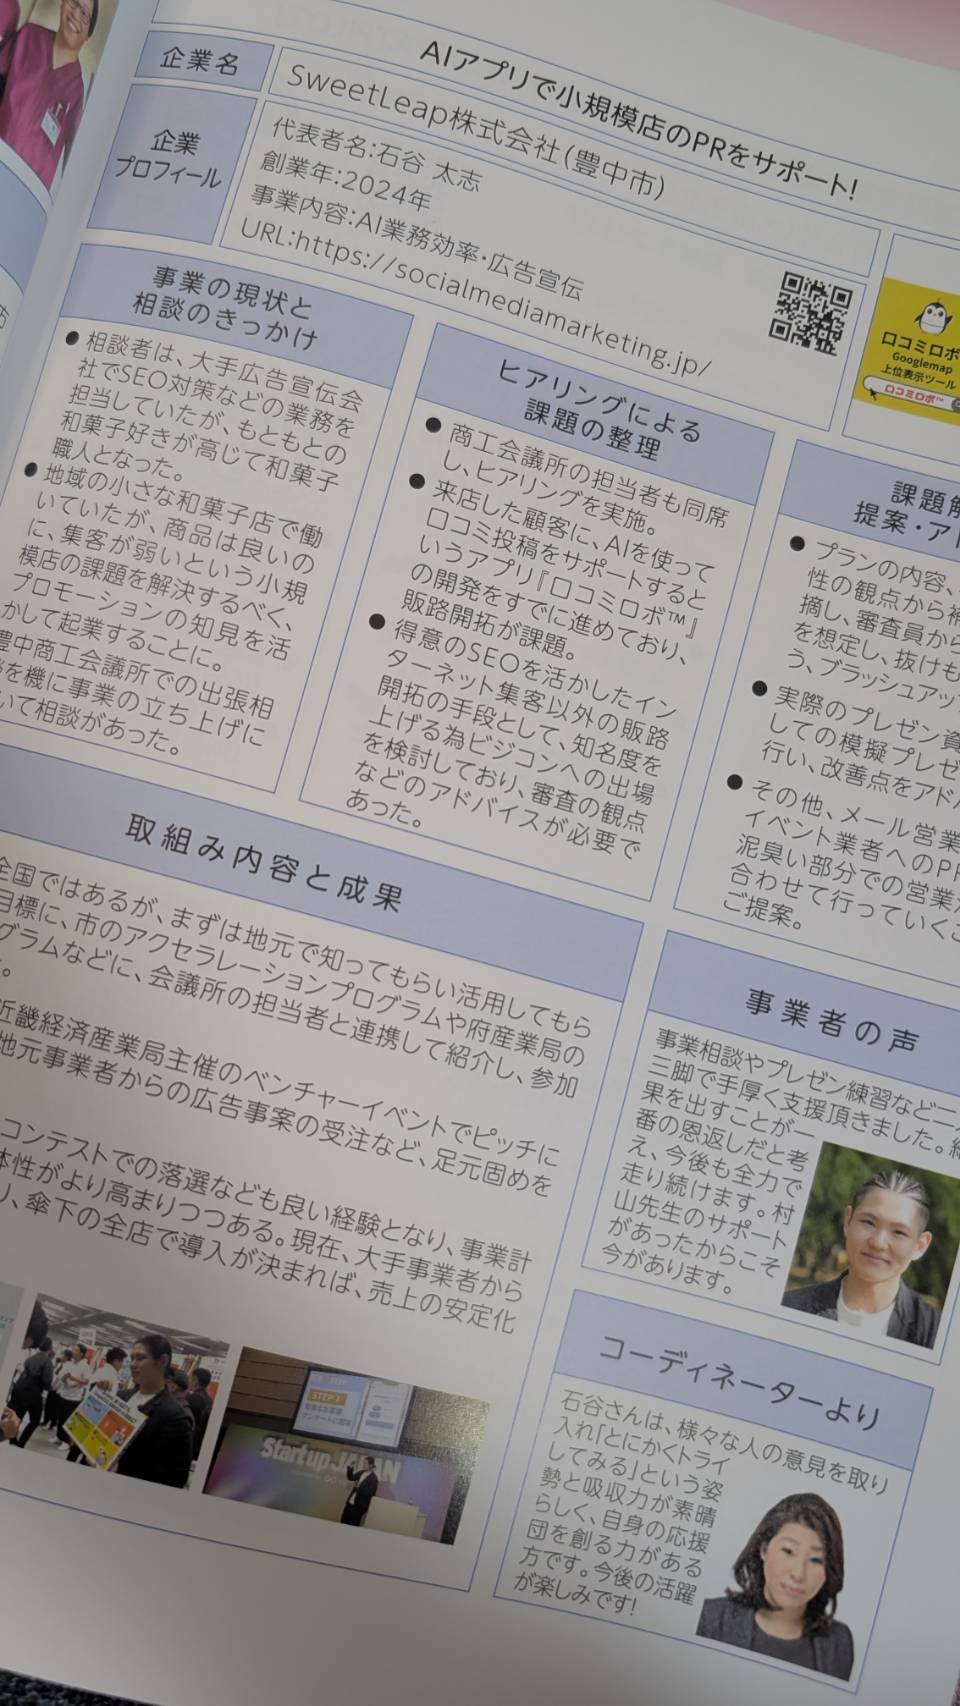 AIアプリで小規模店のPRをサポート!
企業名
SweetLeap株式会社(豊中市)
企業
プロフィール
代表者名:石谷 太志
創業年:2024年
事業内容:AI業務効率・広告宣伝
URL:https://socialmediamarketing.jp/
口コミロボ
Googlemap
上位表示ツール
口コミロボ™
事業の現状と
相談のきっかけ
●相談者は、大手広告宣伝会
社でSEO対策などの業務を
担当していたが、もともとの
和菓子好きが高じて和菓子
職人となった。
●地域の小さな和菓子店で働
いていたが、商品は良いの
に、集客が弱いという小規
模店の課題を解決するべく、
プロモーションの知見を活
かして起業することに。
豊中商工会議所での出張相
を機に事業の立ち上げに
いて相談があった。
ヒアリングによる
課題の整理
●商工会議所の担当者も同席
し、ヒアリングを実施。
●来店した顧客に、AIを使って
口コミ投稿をサポートすると
いうアプリ『口コミロボ™』
の開発をすでに進めており、
販路開拓が課題。
●得意のSEOを活かしたイン
ターネット集客以外の販路
開拓の手段として、知名度を
上げる為ビジコンへの出場
を検討しており、審査の観点
などのアドバイスが必要で
あった。
課題解
提案・アド
●プランの内容、
性の観点から補
摘し、審査員から
を想定し、抜けも
う、ブラッシュアップ
●実際のプレゼン資
しての模擬プレゼ
行い、改善点をアド
●その他、メール営業
イベント業者へのPR
泥臭い部分での営業
合わせて行っていくこ
ご提案。
取組み内容と成果
全国ではあるが、まずは地元で知ってもらい活用してもら
目標に、市のアクセラレーションプログラムや府産業局の
グラムなどに、会議所の担当者と連携して紹介し、参加
。
近畿経済産業局主催のベンチャーイベントでピッチに
地元事業者からの広告事案の受注など、足元固めを
コンテストでの落選なども良い経験となり、事業計
体性がより高まりつつある。現在、大手事業者から
り、傘下の全店で導入が決まれば、売上の安定化
STEP
Startup JAPAN
事業者の声
事業相談やプレゼン練習など二人
三脚で手厚く支援頂きました。結
果を出すことが一
番の恩返しだと考
え、今後も全力で
走り続けます。村
山先生のサポート
があったからこそ
今があります。
コーディネーターより
石谷さんは、様々な人の意見を取り
入れ「とにかくトライ
してみる」という姿
勢と吸収力が素晴
らしく、自身の応援
団を創る力がある
方です。今後の活躍
が楽しみです!